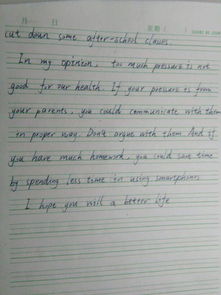 月 日 星期
cut down some after-school classes.
In my opinion, too much pressure is not
good for our health. If your pressure is from
your parents, you could communicate with them
in proper way. Don't argue with them. And if
you have much homework, you could save time
by spending less time in using smartphones
I hope you will a better life